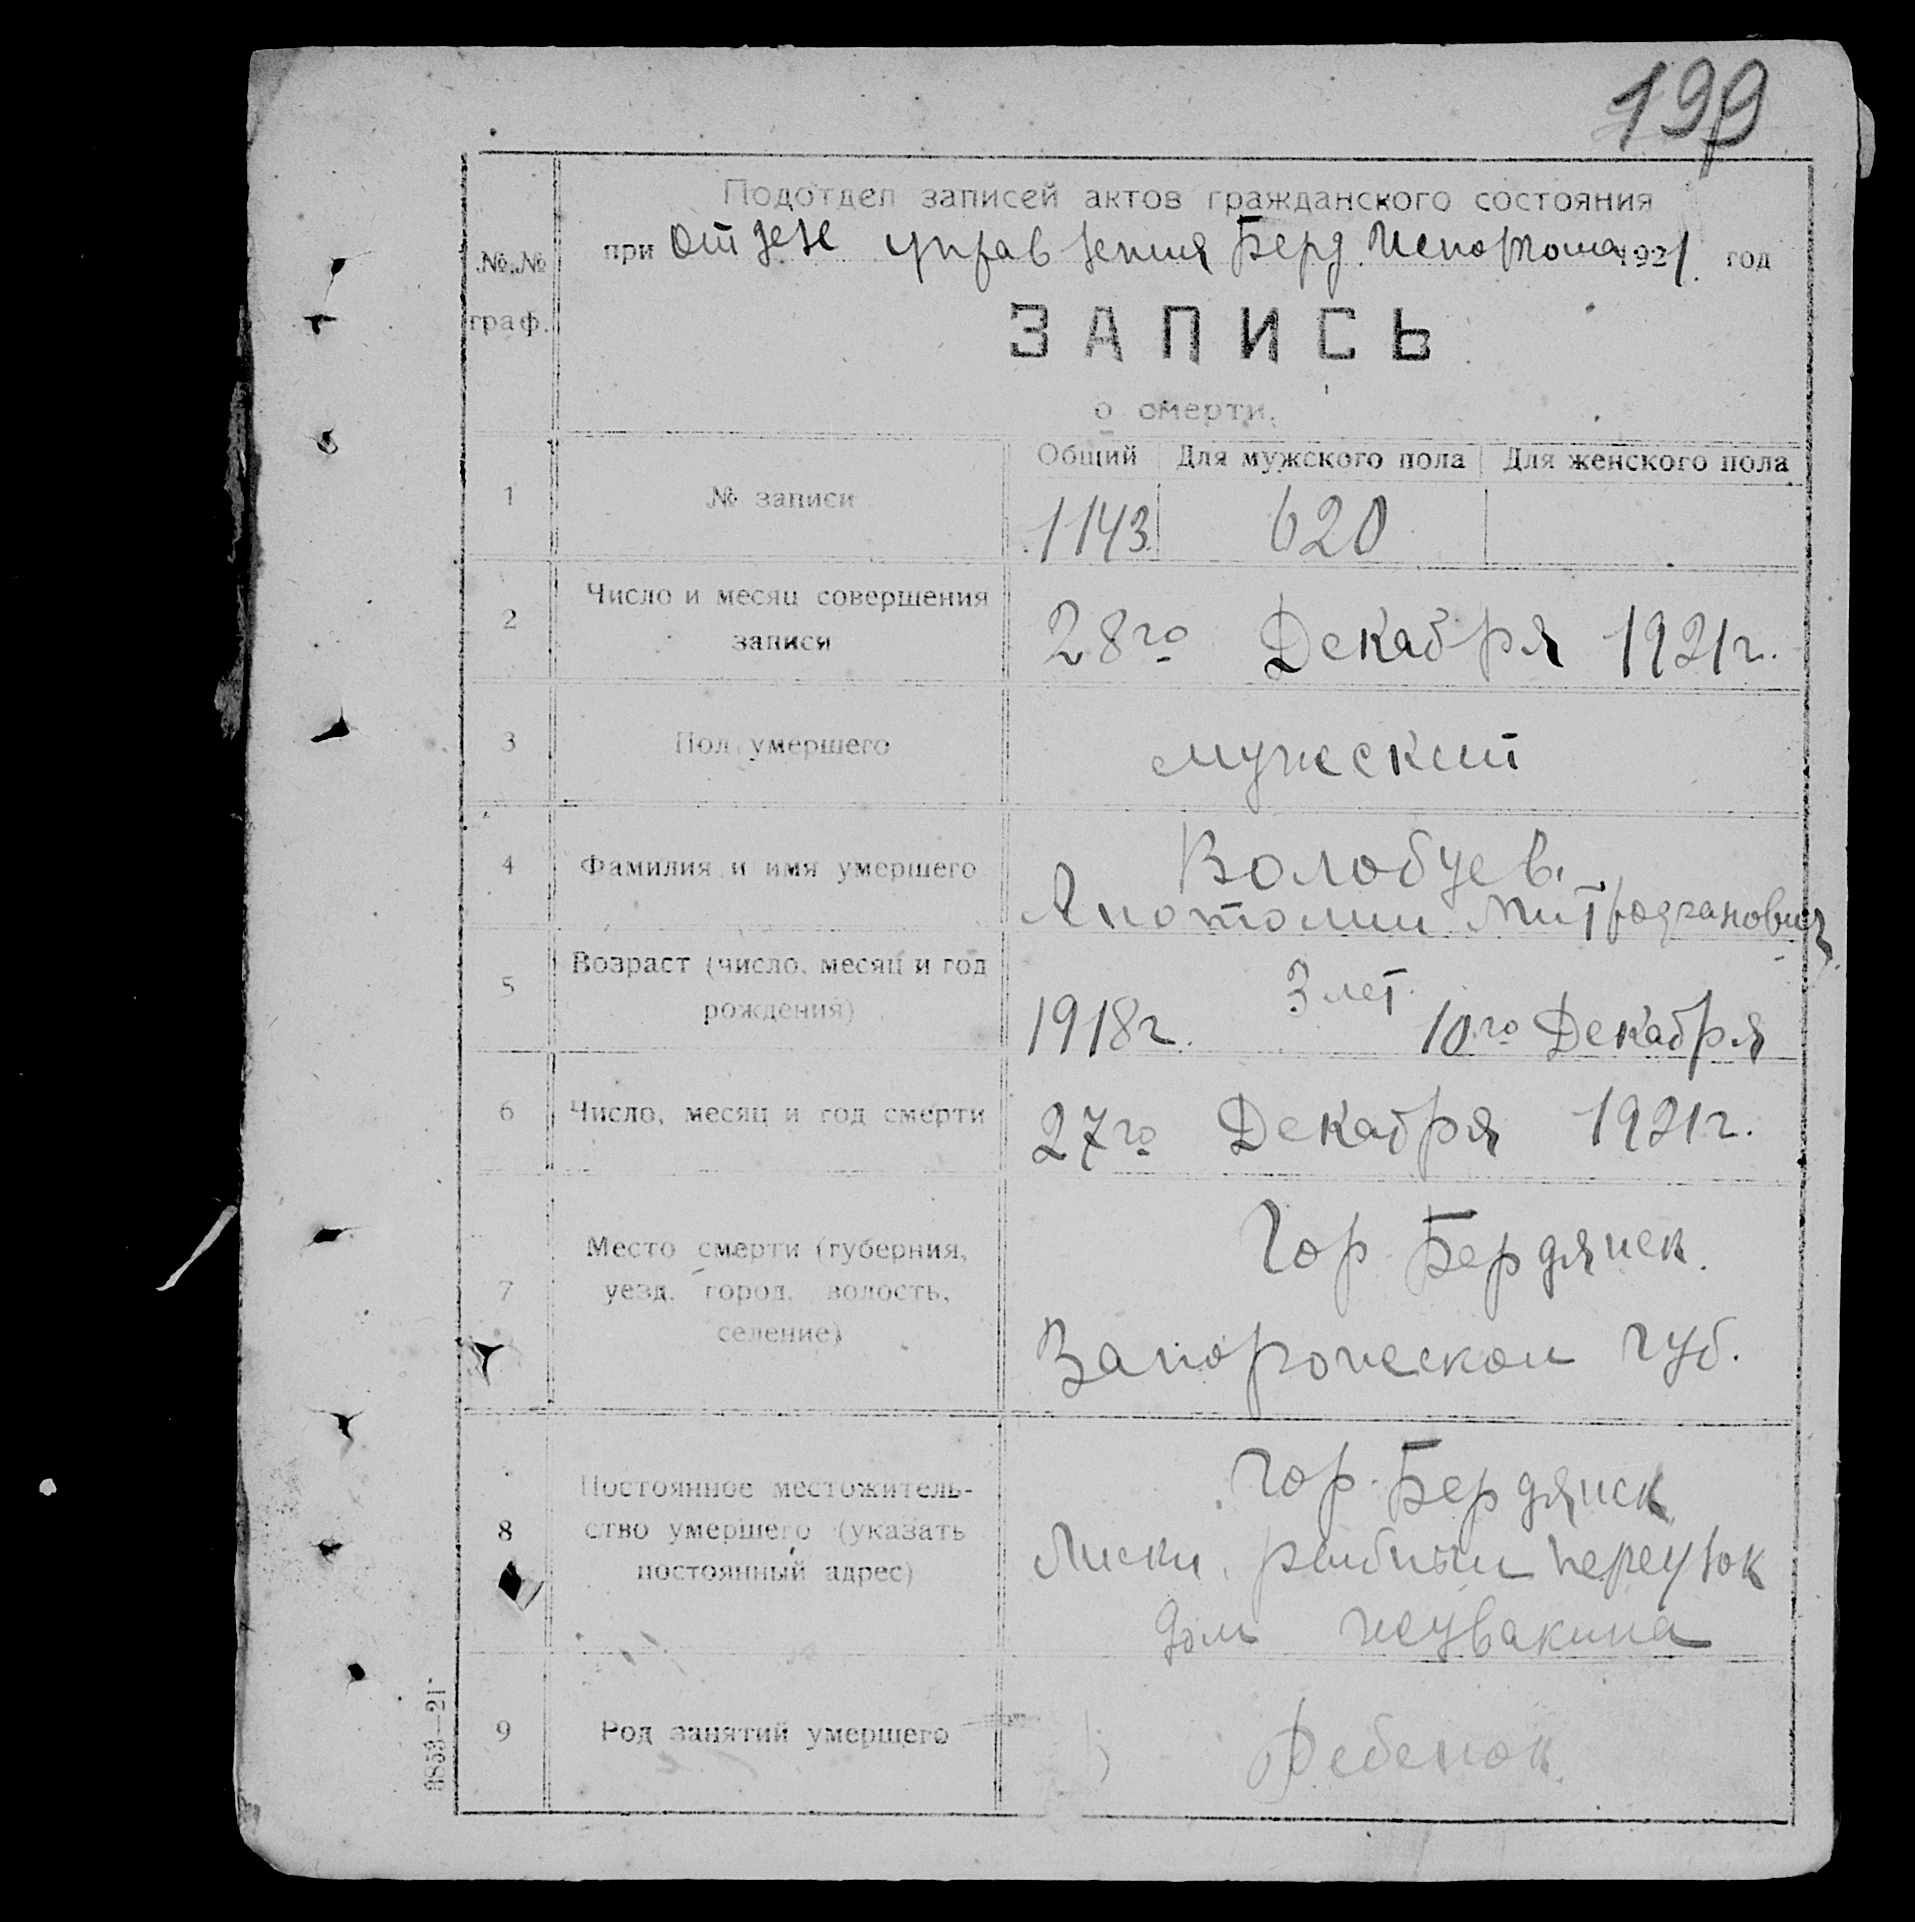 199
Подотдел записей актов гражданского состояния
при Отделе управления Берд. Исполкома 1921 год
№№ граф.
ЗАПИСЬ
о смерти.
Общий Для мужского пола Для женского пола
1 № записи 1143 620
2 Число и месяц совершения записи 28го Декабря 1921 г.
3 Пол умершего мужеский
4 Фамилия и имя умершего Волобуев
Анотолий Митрофанович
5 Возраст (число, месяц и год рождения) 3 лет
1918 г. 10го Декабря
6 Число, месяц и год смерти 27го Декабря 1921 г.
7 Место смерти (губерния, уезд, город, волость, селение) Гор. Бердянск.
Запорожской губ.
8 Постоянное местожитель-
ство умершего (указать постоянный адрес) Гор. Бердянск
Лиски, рыбный переулок
дом
9 Род занятий умершего Ребенок.
3853—21